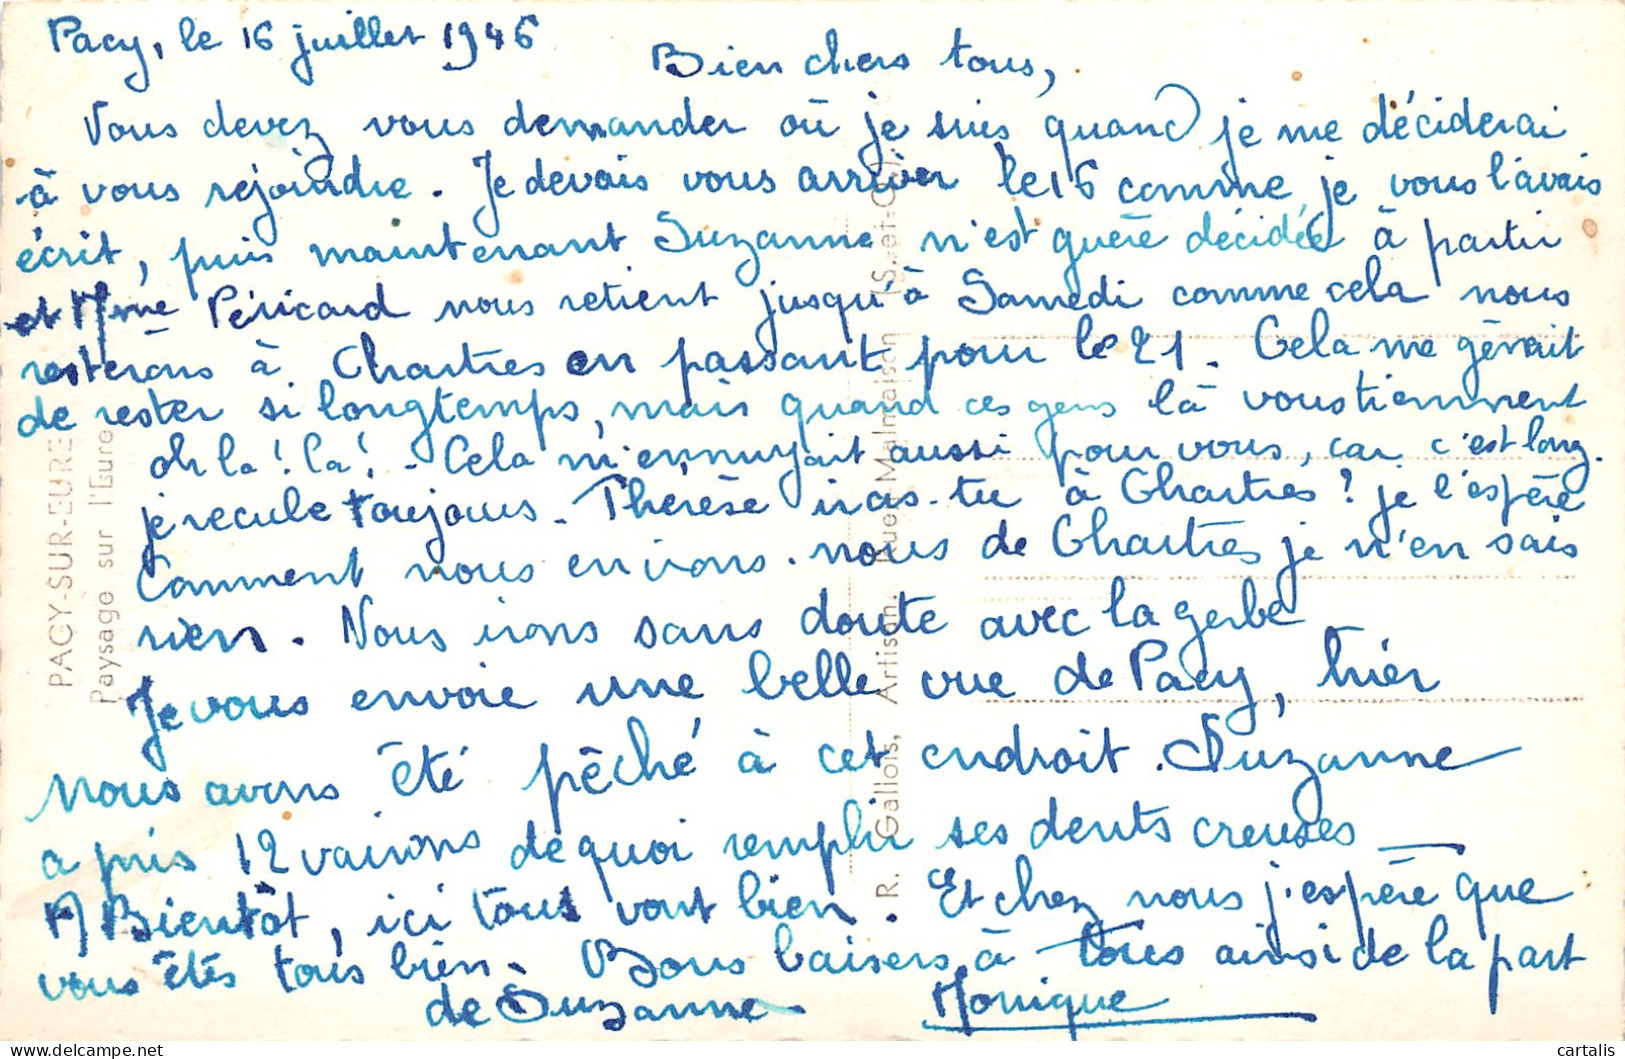 Pacy, le 16 juillet 1946
Bien chers tous,
Vous devez vous demander où je suis quand je me déciderai
à vous rejoindre. Je devais vous arriver le 16 comme je vous l'avais
écrit, puis maintenant Suzanne n'est guère décidée à partir
et Mme Péricard nous retient jusqu'à Samedi comme cela nous
resterons à Chartres en passant pour le 21. Cela me gênait
de rester si longtemps, mais quand ces gens là vous tiennent
oh la! la! - Cela m'ennuyait aussi pour vous, car c'est long.
je recule toujours - Thérèse iras-tu à Chartres? je l'espère
Comment nous en irons-nous de Chartres je n'en sais
rien. Nous irons sans doute avec la gerbe
Je vous envoie une belle vue de Pacy, hier
nous avons été pêché à cet endroit. Suzanne
a pris 12 vairons de quoi remplir ses dents creuses —
A Bientôt, ici tous vont bien. Et chez nous j'espère que
vous êtes tous bien. Bons baisers à tous ainsi de la part
de Suzanne - Monique
PACY-SUR-EURE
Paysage sur l'Eure
R. Gallois, Artisan, Rueil-Malmaison (S.-et-O.)
cartalis